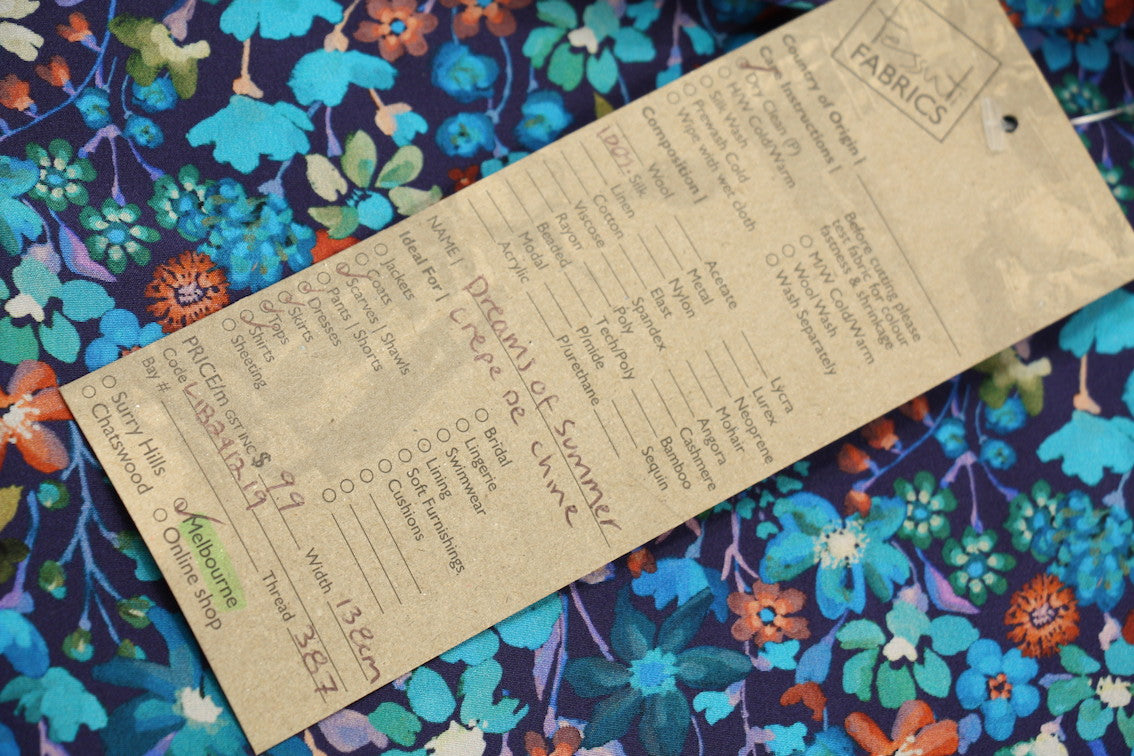 Tessuti
FABRICS
Country of Origin |
Care Instructions |
Dry Clean (P)
H/W Cold/Warm
Silk Wash
Prewash Cold
Wipe with wet cloth
Before cutting please
test fabric for colour
fastness & shrinkage
M/W Cold/Warm
Wool Wash
Wash Separately
Composition |
Wool
100% Silk
Linen
Cotton
Viscose
Rayon
Beaded
Modal
Acrylic
Acetate
Metal
Nylon
Elast
Spandex
Poly
Tech/Poly
P/mide
P/urethane
Lycra
Lurex
Neoprene
Mohair
Angora
Cashmere
Bamboo
Sequin
NAME | Dreams of Summer
crepe De chine
Ideal For |
Jackets
Coats
Scarves | Shawls
Pants | Shorts
Dresses
Skirts
Tops
Shirts
Sheeting
Bridal
Lingerie
Swimwear
Lining
Soft Furnishings
Cushions
PRICE/m GST INC $ 99 Width 138cm
Code LIB241219 Thread 387
Bay #
Surry Hills
Chatswood
Melbourne
Online shop